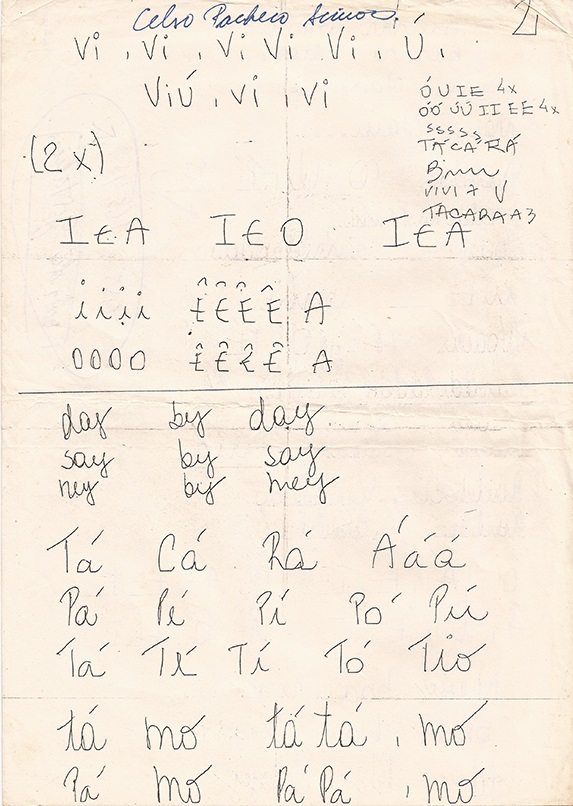 Celso Pacheco
2
Vi , Vi , Vi Vi Vi , Ú ,
ViÚ , Vi , Vi
Ó U I E 4x
ÓÓ ÚÚ I I E E 4x
sssss
TÁ CÁ RÁ
VIVI 7 V
TACARAA3
(2x)
I E A I E O I E A
i i i i Ê Ê Ê Ê A
O O O O Ê Ê Ê Ê A
day by day
say by say
ney by mey
Tá Cá Rá Á á á
Pá Pé Pí Pó Pú
Tá Té Tí Tó Tio
tá mó tá tá , mó
Pá mó Pá Pá , mó